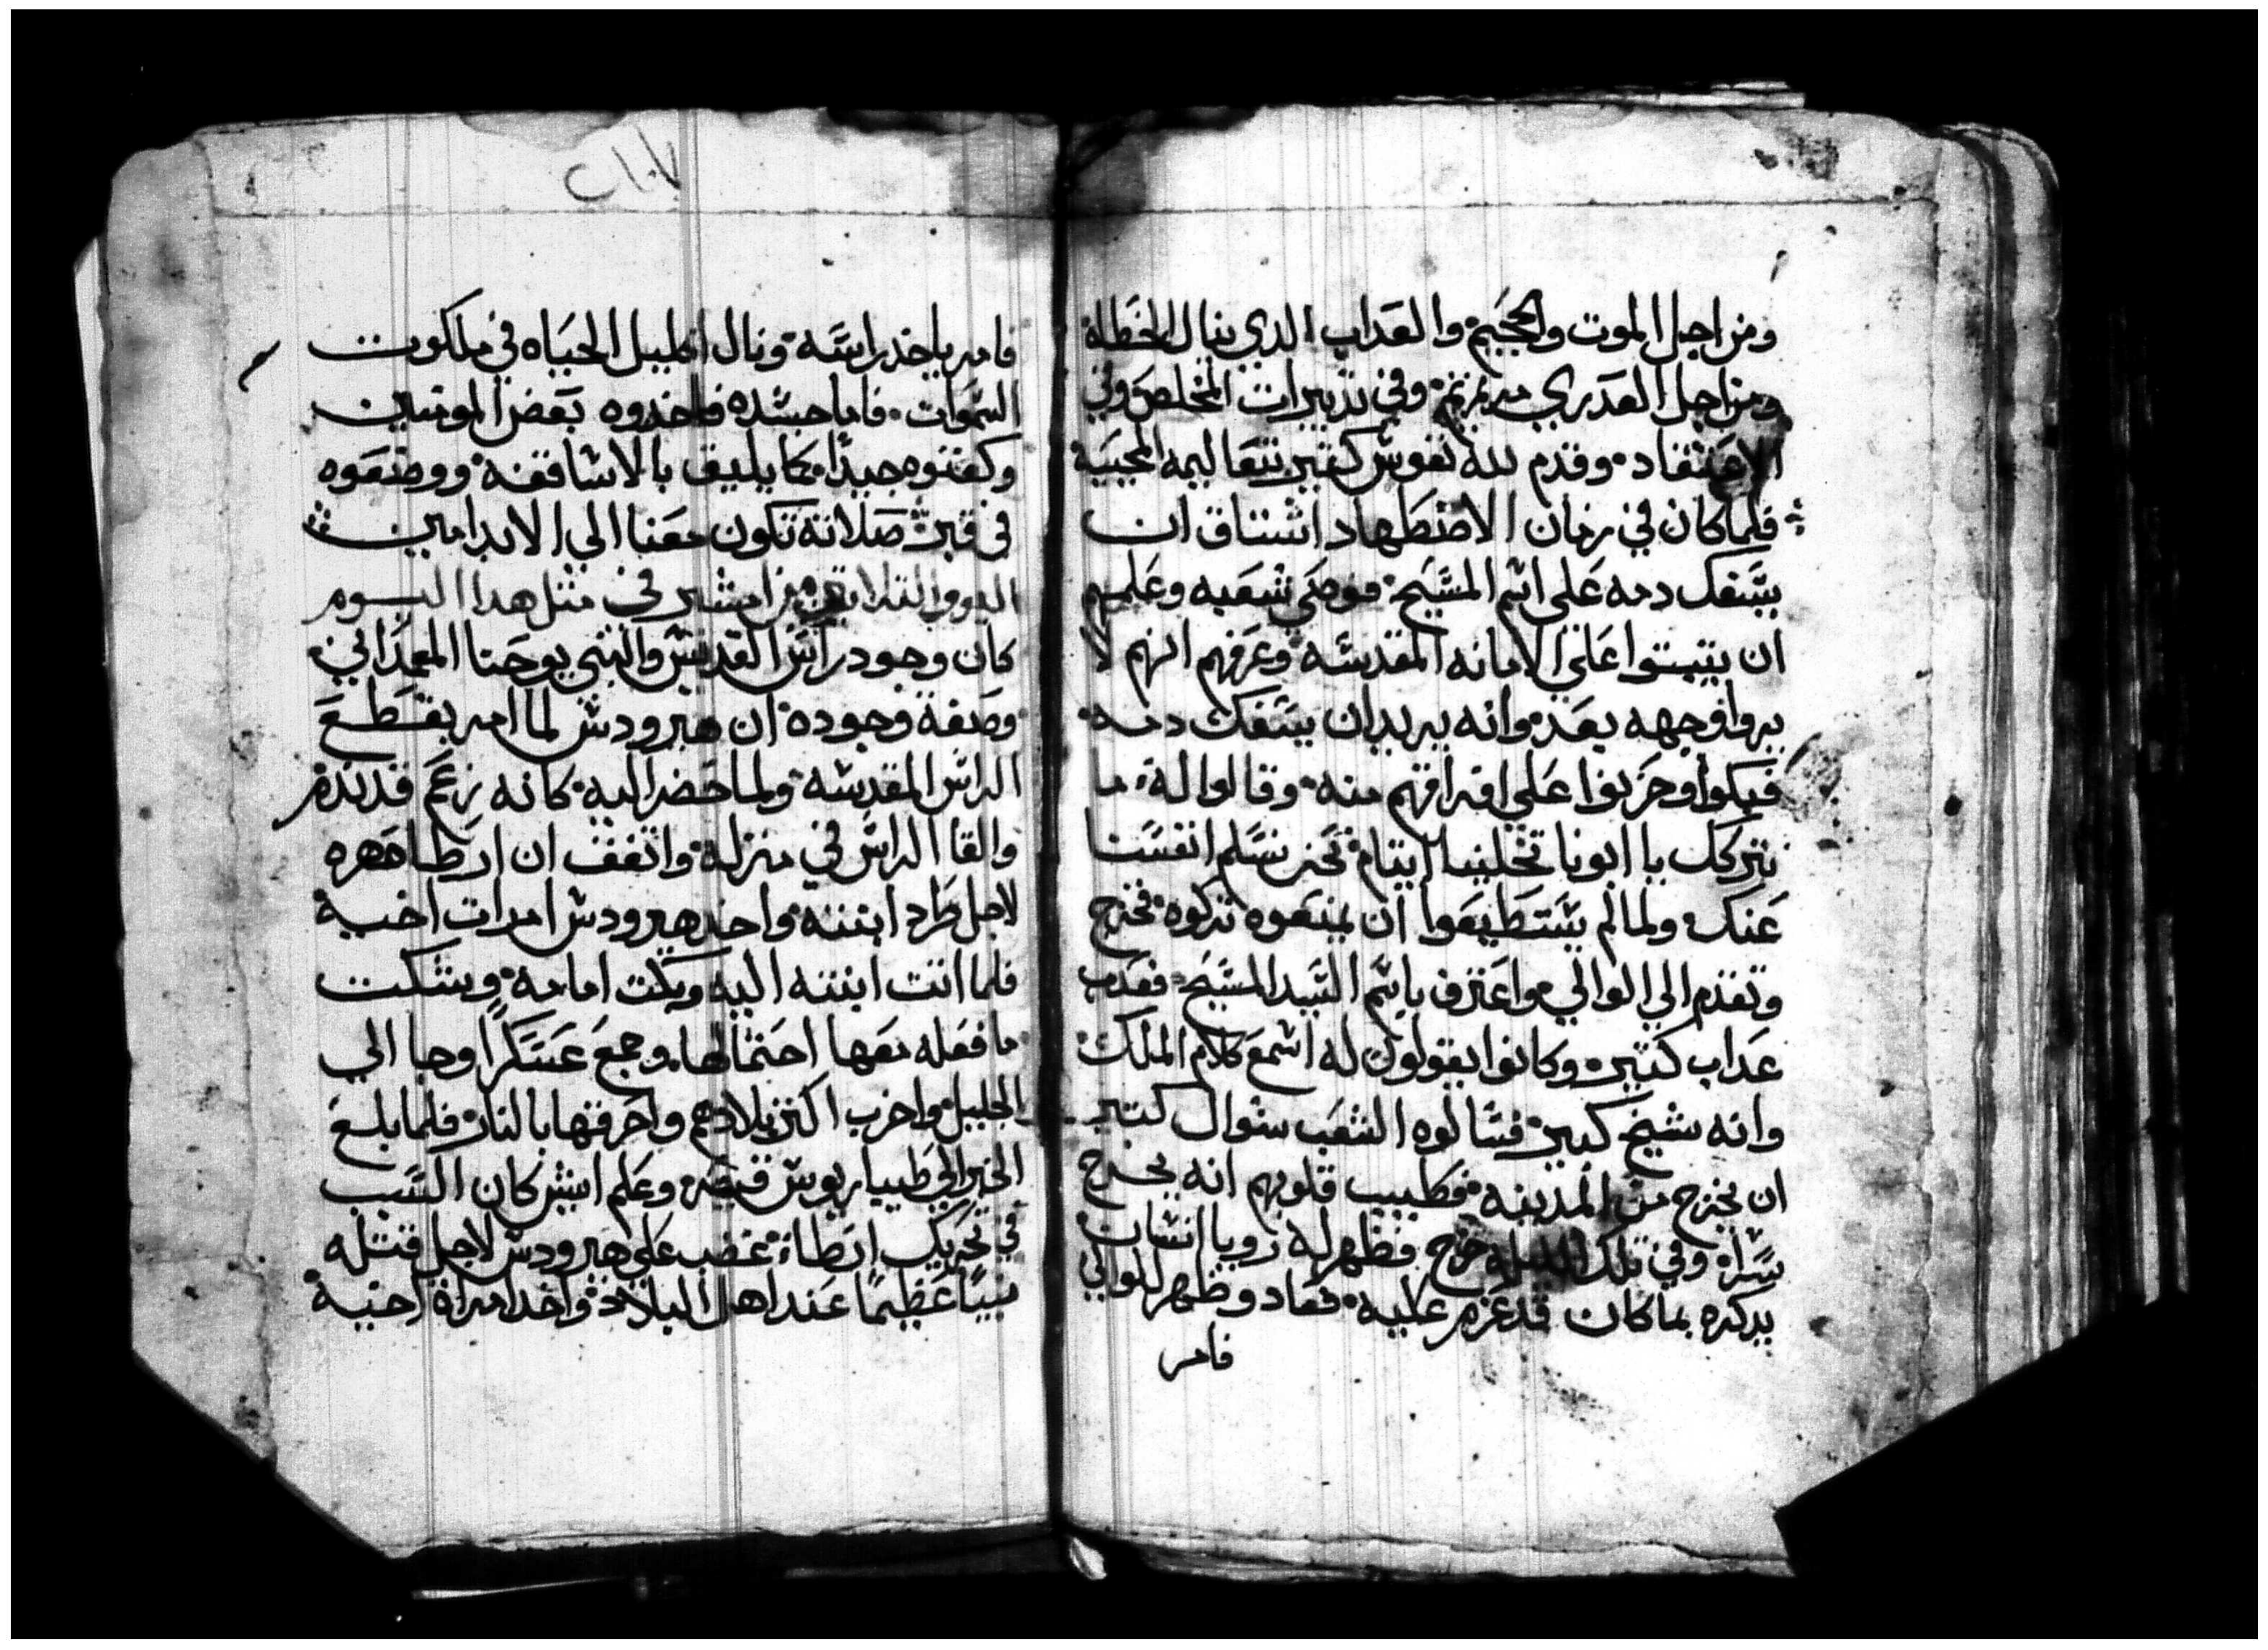 ومن اجل الموت والجحيم والعداب الدي ينال الخطاه
ومن اجل العدري مريم وفي تدبيرات المخلص وفي
الاعتقاد وقدم لله نفوس كتير بتعاليمه المحييه
فلما كان في زمان الاضطهاد اشتاق ان
يسفك دمه على اسم المسيح فوصى شعبه وعلمهم
ان يتبتوا على الامانه المقدسه وعرفهم انهم لا
يروا وجهه بعد وانه يريد ان يسفك دمه
فبكوا وحزنوا على افراقهم منه وقالوا له ما
نتركك يا ابونا تخلينا ايتام نحن نسلم انفسنا
عنك ولما لم يستطيعوا ان يمنعوه تركوه فخرج
وتقدم الي الوالي واعترف باسم السيد المسيح فعدب
عداب كتير وكانوا يقولون له اسمع كلام الملك
وانه شيخ كبير فسالوه الشعب سوال كتير
ان يخرج من المدينه فطيب قلوبهم انه يخرج
سرا وفي تلك الليله خرج فظهر له رويا انسان
يدكره بما كان قد عزم عليه فعاد وظهر للوالي
فامر
٢١٠٧
فامر باخد راسه ونال اكليل الحياه في ملكوت
السموات فاما جسده فاخدوه بعض المومنين
وكفنوه جيدا كما يليق بالاساقفه ووضعوه
في قبر صلاته تكون معنا الي الابد امين
اليوم التلاتين من امشير في متل هدا اليوم
كان وجود راس القديس والنبي يوحنا المعمداني
وصفة وجوده ان هيرودس لما امر بقطع
الراس المقدسه ولما حضر اليه كانه زعم قد ندم
والقا الراس في منزله واتفق ان ارطا صهره
لاجل طرد ابنته واخد هيرودس امرات اخيه
فلما اتت ابنته اليه وبكت امامه وشكت
ما فعله معها احتمالها وجمع عسكرا وجا الي
الجليل واخرب اكتر بلادهم واحرقها بالنار فلما بلغ
الخبر الي طيباريوس قيصر وعلم ايش كان السبب
في تحريك ارطاة غضب على هيرودس لاجل قتله
نبيا عظيما عند اهل البلاد واخد امراة اخيه